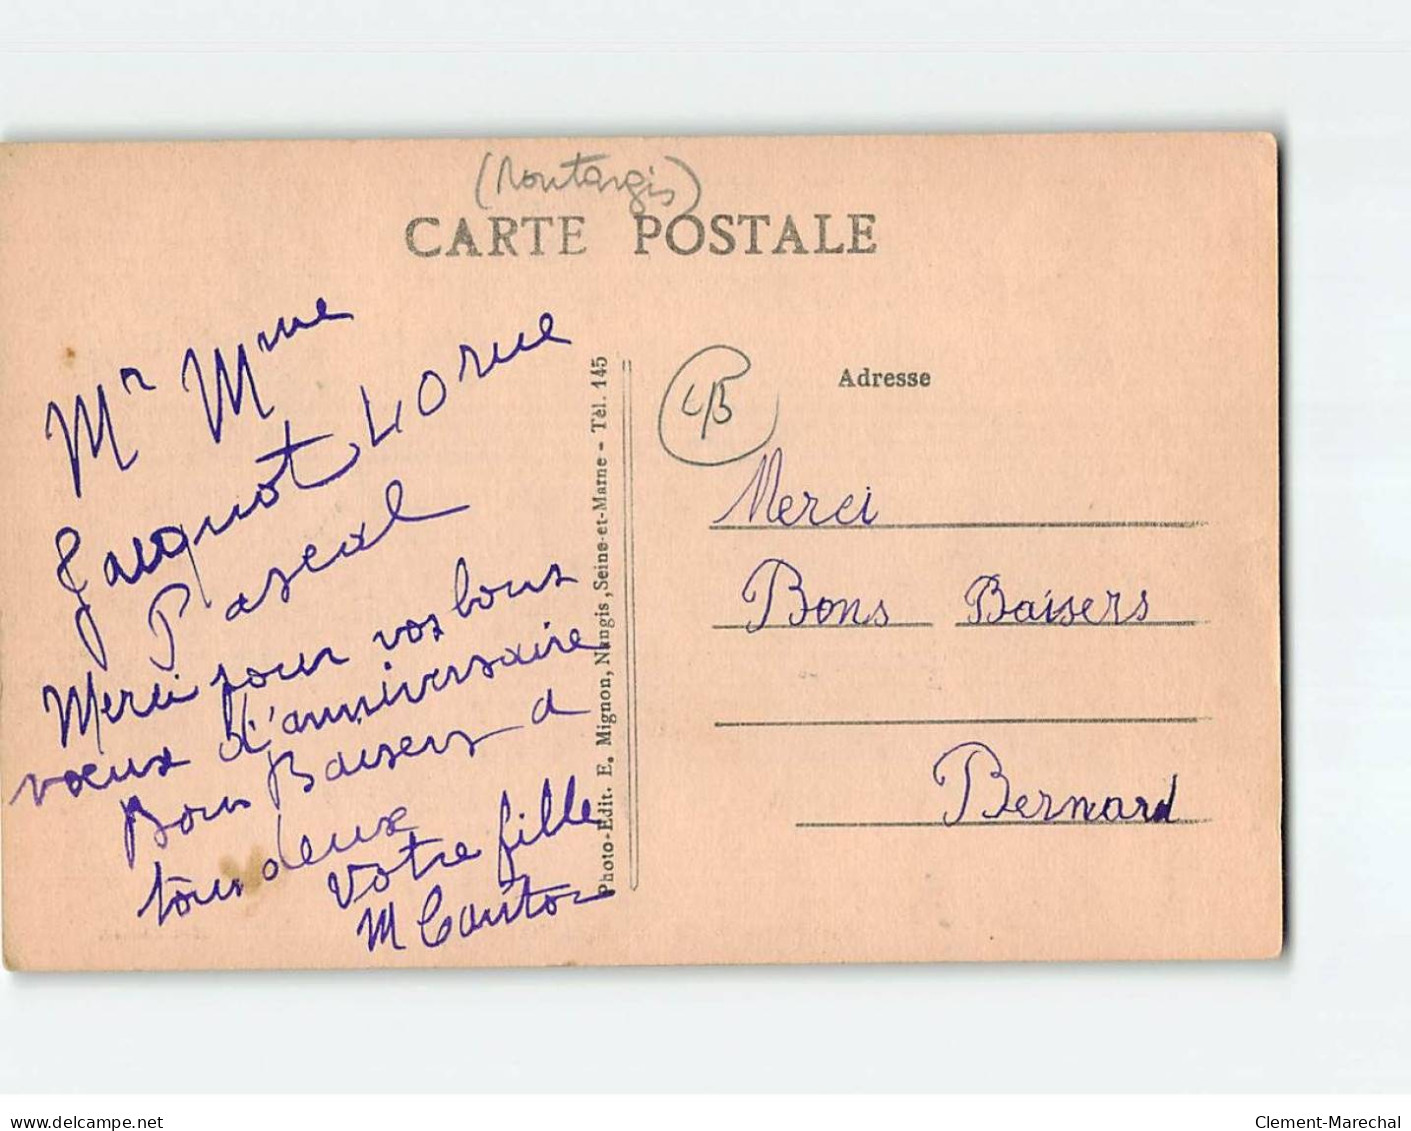 (Montargis)
CARTE POSTALE
Mr Mme
Jacquot 40 rue
Pascal
Merci pour vos bons
vœux d'anniversaire
Bons Baisers a
tous deux
Votre fille
M Canton
Photo-Edit. E. Mignon, Nangis, Seine-et-Marne - Tél. 145
45
Adresse
Merci
Bons Baisers
Bernard
www.delcampe.net
Clement-Marechal